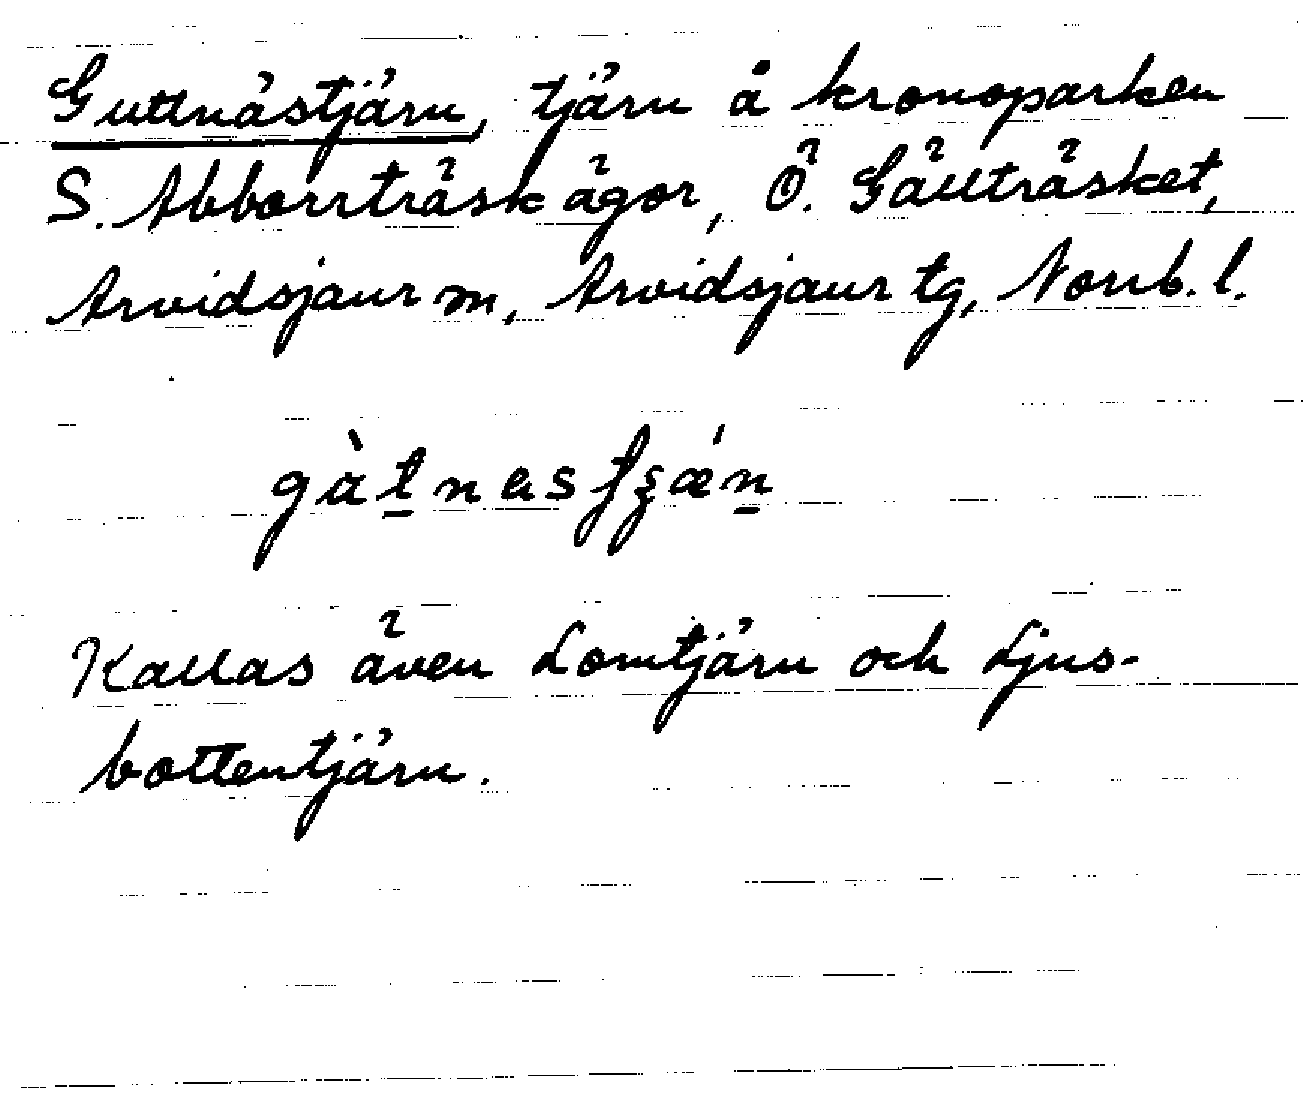 Guttnästjärn, tjärn å kronoparken
S. Abborrträsk ägor, Ö. Gäuträsket,
Arvidsjaur m, Arvidsjaur tg, Norrb. l.
Kallas även Lomtjärn och Ljus-
bottentjärn.